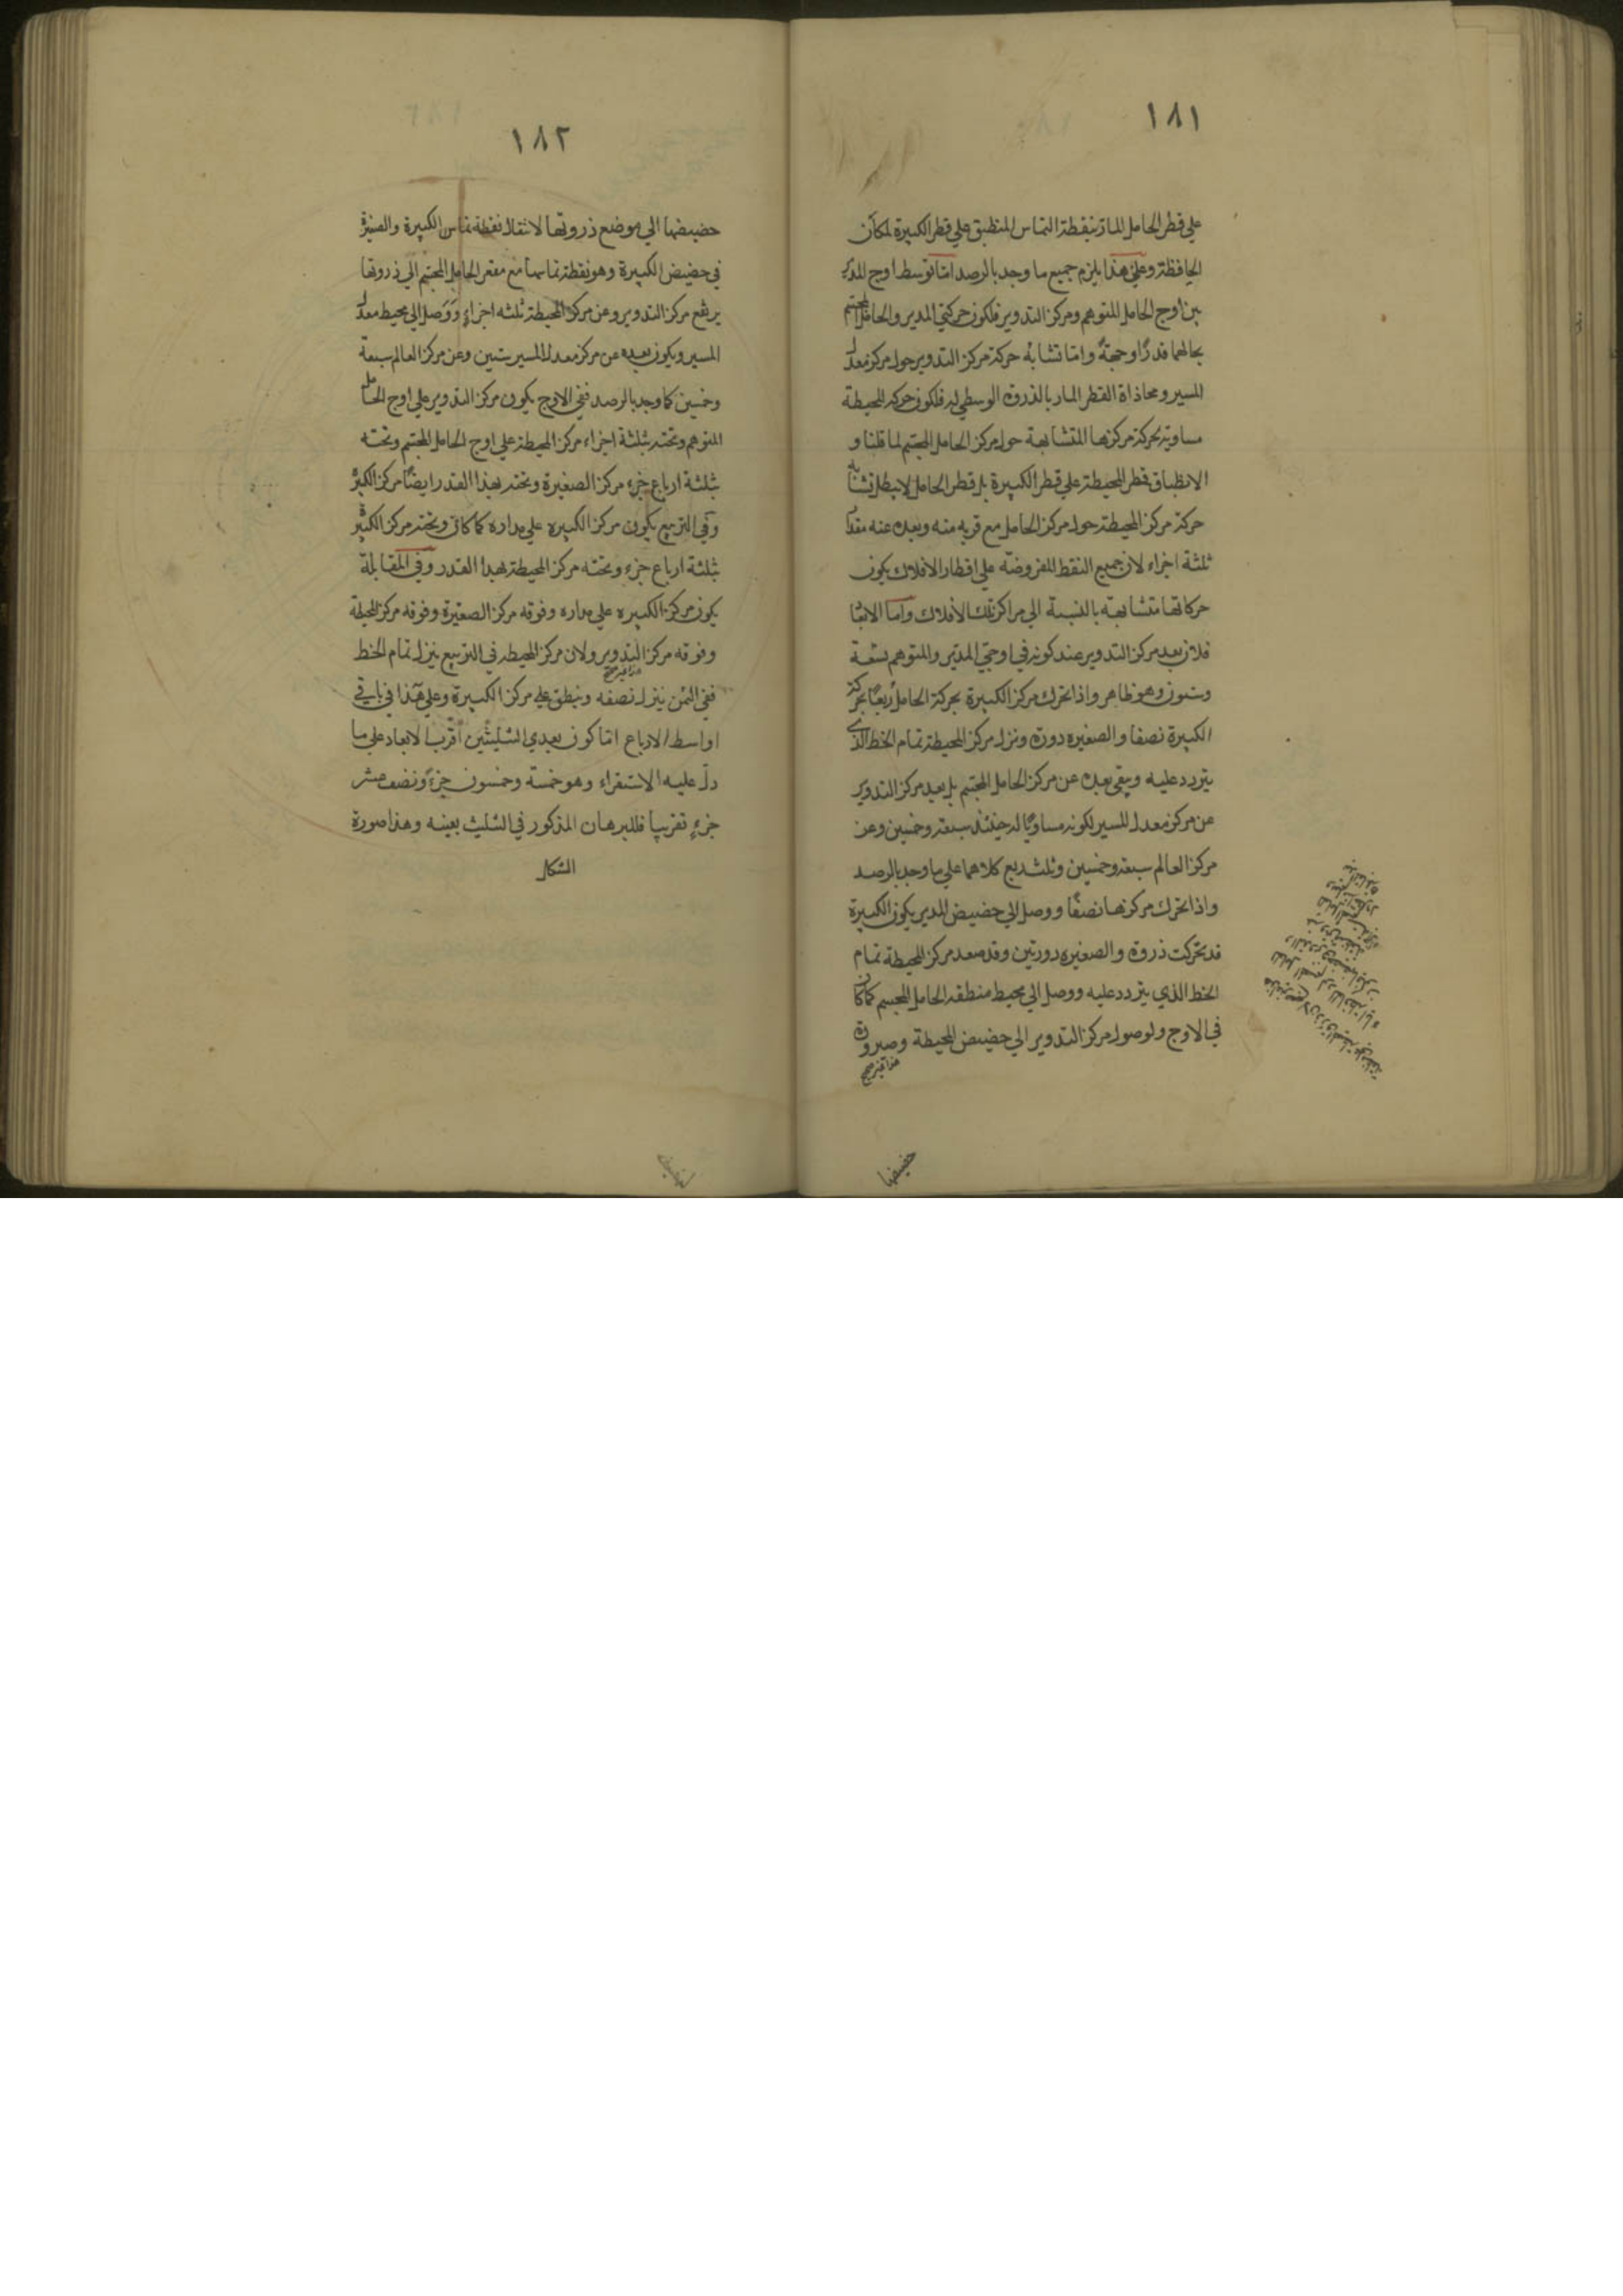 ١٨١
علي قطر الحامل المارّ بنقطة التماس المنطبق علي قطر الكبيرة لمكان
الحافظة وعلي هذا يلزم جميع ما وجد بالرصد امّا توسط اوج المدير
بين اوج الحامل المتوهم ومركز التدوير فلكون حركتي المدير والحامل المجسم
بحالهما قدرًا وجهةً وامّا تشابُه حركة مركز التدوير حول مركز معدل
المسير ومحاذاة القطر المار بالذروة الوسطي له فلكون حركة المحيطة
مساوية لحركة مركزها المتشابهة حول مركز الحامل المجسم لما قلنا و
الانطباق قطر المحيطة علي قطر الكبيرة بل قطر الحامل لا يبطل تشابه
حركة مركز المحيطة حول مركز الحامل مع قربه منه وبعده عنه مقدار
ثلثة اجزاء لان جميع النقط المفروضة علي اقطار الافلاك يكون
حركاتها متشابهة بالنسبة الي مراكز تلك الافلاك وامّا الابعاد
فلان بعد مركز التدوير عند كونه في اوجي المدير والمتوهم تسعة
وستون وهو ظاهر واذا تحرك مركز الكبيرة بحركة الحامل ربعًا تحركة
الكبيرة نصفا والصغيرة دورة ونزل مركز المحيطة تمام الخط الذي
يتردد عليه ويبقي بعده عن مركز الحامل المجسم بل بعد مركز التدوير
عن مركز معدل المسير لكونه مساويًا له حينئذ سبعة وخمسين وعن
مركز العالم سبعة وخمسين وثلث ربع كلاهما علي ما وجد بالرصد
واذا تحرك مركزها نصفًا ووصل الي حضيض المدير يكون الكبيرة
قد تحركت ذروة والصغيرة دورتين وقد صعد مركز المحيطة تمام
الخط الذي يتردد عليه ووصل الي محيط منطقة الحامل المجسم كما كان
في الاوج ولوصول مركز التدوير الي حضيض المحيطة وصيرورة
حضيضها
١٨٢
حضيضها الي موضع ذروتها لانتقال نقطة تماس الكبيرة والصغيرة
في حضيض الكبيرة وهو نقطة تماسها مع مقعر الحامل المجسم الي ذروتها
يرتفع مركز التدوير وعن مركز المحيطة ثلثه اجزاءٍ وَوَصل الي محيط معدل
المسير ويكون بعده عن مركز معدل المسير ستين وعن مركز العالم سبعة
وخمسين كما وجد بالرصد ففي الاوج يكون مركز التدوير علي اوج الحامل
المتوهم وتحته بثلثة اجزاء مركز المحيطة علي اوج الحامل المجسم وتحته
بثلثة ارباع جزء مركز الصغيرة وتحته بهذا القدر ايضًا مركز الكبيرة
وفي التربيع يكون مركز الكبيرة علي مداره كما كان وتحته مركز الكبيرة
بثلثة ارباع جزء وتحته مركز المحيطة بهذا القدر وفي المقابلة
يكون مركز الكبيره علي مداره وفوقه مركز الصغيرة وفوقه مركز المحيطة
وفوقه مركز التدوير ولان مركز المحيطه في التربيع ينزل تمام الخط
ففي الثمن ينزل نصفه وينطبق علي مركز الكبيرة وعلي هذا في باقي
اواسط الارباع امّا كون بعدي التثليثين اقرب الابعاد علي ما
دلّ عليه الاستقراء وهو خمسة وخمسون جزءً ونصف عشر
جزءٍ تقريباً فللبرهان المذكور في التثليث بعينه وهذا صورة
الشكل